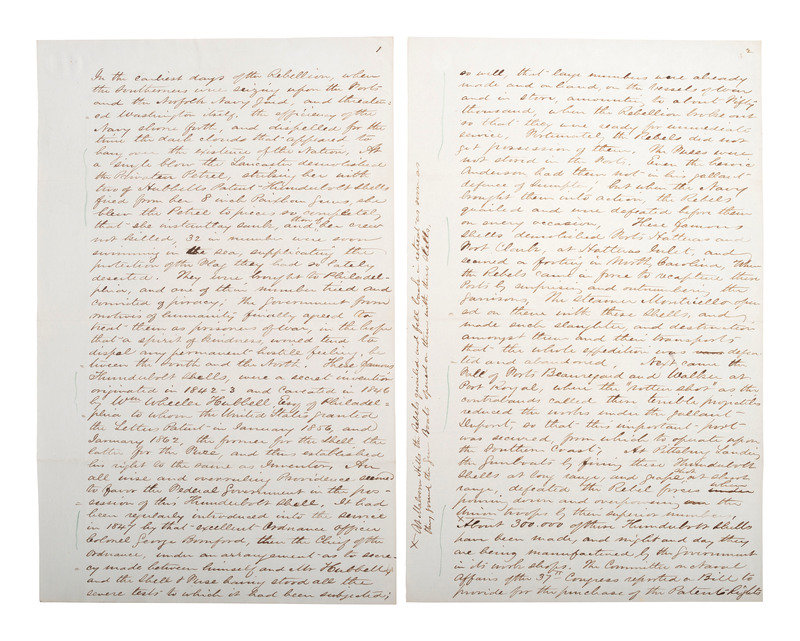 1
In the earliest days of the Rebellion, when
the Southerners were seizing upon the Forts
and the Norfolk Navy Yard, and threaten-
ed Washington itself, the efficiency of the
Navy shone forth, and dispelled for the
time the dark clouds that appeared to
hang over the existence of the Nation. At
a single blow the Lancaster demolished
the Privateer Petrel, striking her with
two of Hubbells Patent Thunderbolt Shells
fired from her 8 inch Paixhan Guns, she
blew the Petrel to pieces so completely,
that she instantly sunk, and her crew
not killed, 32 in number were soon
swimming in the sea, supplicating the
protection of the Flag they had so lately
deserted. They were brought to Philadel-
phia, and one of their number tried and
convicted of piracy; the Government from
motives of humanity finally agreed to
treat them as prisoners of war, in the hope
that a spirit of kindness, would tend to
dispel any permanent hostile feeling, be
tween the South and the North. These famous
Thunderbolt Shells, were a secret invention
originated in 1842-3 and Caveated in 1846
by Wm Wheeler Hubbell Esq of Philadel-
phia to whom the United States granted
the Letters Patent in January 1856, and
January 1862, the former for the Shell the
latter for the Fuse and thus established
his right to the same as Inventor. An
all wise and overruling Providence seemed
to favor the Federal Government in the pos-
session of this Thunderbolt Shell. It had
been regularly introduced into the service
in 1847 by that excellent Ordnance officer
Colonel George Bomford, then the Chief of the
Ordnance, under an arrangement as to secre-
cy made between himself and Mr Hubbell,
and the Shell & Fuse having stood all the
severe tests to which it had been subjected;
2
so well, that large numbers were already
made and on hand, on the Vessels of War
and in store, amounting to about Fifty
thousand, when the Rebellion broke out
so that they were ready for immediate
service, Fortunately the Rebels did not
get possession of them. The Fuses were
not stored in the Forts. Even the heroic
Anderson had them not in his gallant
defence of Sumpter; but when the Navy
brought them into action, the Rebels
quailed and were defeated before them
on every occasion. These famous
Shells demolished Forts Hatteras and
Fort Clark, at Hatteras Inlet, and
secured a footing in North Carolina, When
the Rebels came in force to recapture these
Forts by surprising and outnumbering the
garrisons, The Steamer Monticello open-
ed on them with these Shells, and
made such slaughter, and destruction
amongst them and their transports
that the whole expedition was defea-
ted and abandoned. Next came the
fall of Forts Beauregard and Walker at
Port Royal, where the "rotten shot" as the
contrabands called these terrible projectiles
reduced the works under the gallant
Dupont, so that this important port
was secured, from which to operate upon
the Southern Coast; At Pittsburg Landing
the Gunboats by firing these Thunderbolt
Shells at long range, and grape at short
range, defeated the Rebel forces
down and over the
Union troops by their superior numbers.
About 300.000 of these Thunderbolt Shells
have been made, and night and day they
are being manufactured by the Government
in its work shops. The Committee on Naval
Affairs of the 37th Congress reported a Bill to
provide for the purchase of the Patent Rights
x At Malvern Hills the Rebels quailed and fell back in retreat as soon as
they found the Gun Boats opened on them with these Shells.